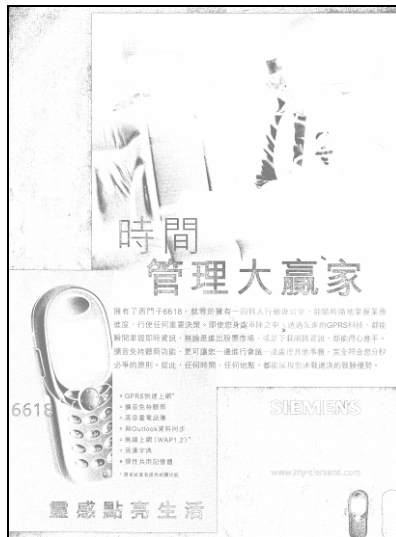 時間
管理大贏家
擁有了西門子6618，就等於擁有一個私人行動辦公室，並能時時地掌握業務
進度，行使任何重要決策。即使您身處車陣之中，透過先進的GPRS科技，都能
瞬間掌握即時資訊，無論是進出股票市場，或是下載網路資訊，都能得心應手。
擴音免持聽筒功能，更可讓您一邊進行會議一邊處理其他事務，完全符合您分秒
必爭的原則。從此，任何時間、任何地點，都能展現您速戰速決的致勝優勢。
6618
•GPRS快速上網*
•擴音免持聽筒
•高容量電話簿
•與Outlook資料同步
•無線上網(WAP1.2)*
•英漢字典
•彈性共用記憶體
SIEMENS
www.my-siemens.com
靈感點亮生活